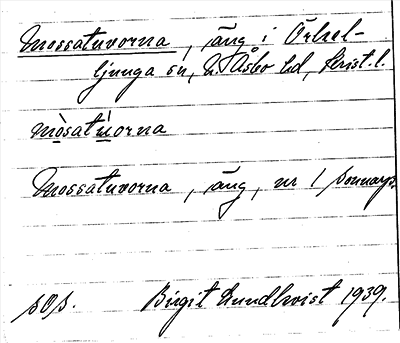 Mossatuvorna, äng i Örkel-
ljunga sn, N. Åsbo hd, Krist. l.
mòsatùorna
Mossatuvorna, äng, nr 1 Sonnarp.
SOS. Birgit Lundkvist 1939.